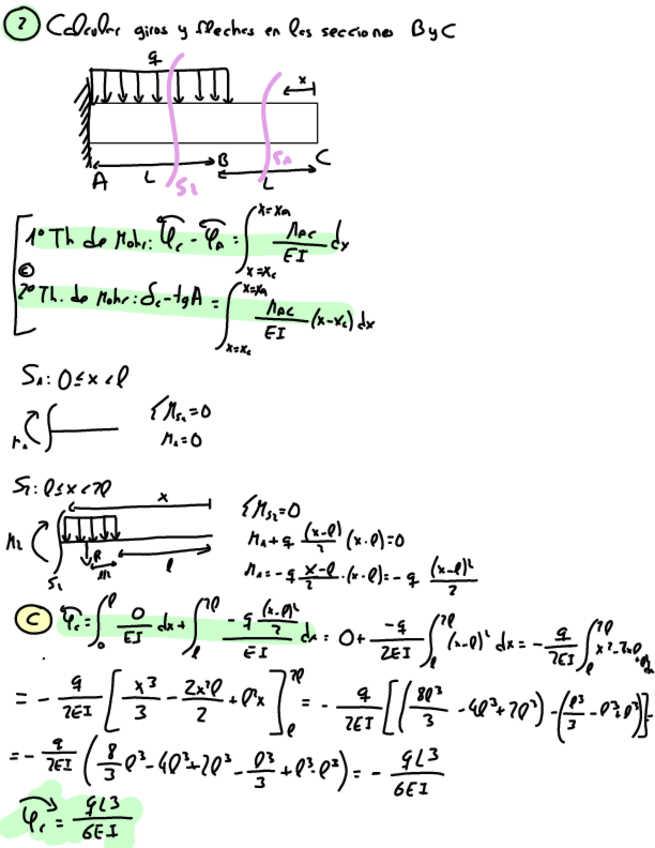 2 Calcular giros y flechas en las secciones B y C
q
x
A L S2 B S1 L C
1º Th de Mohr: φc - φA = ∫_{x=xc}^{x=xA} MAC/EI dx
2º Th. de Mohr: δc - tgA = ∫_{x=xc}^{x=xA} MAC/EI (x-xc) dx
S1: 0≤x<l
M1
ΣMS1=0
M1=0
S2: l≤x<2l
x
M2
R
l
S2
ΣMS2=0
M2+q (x-l)/2 (x-l)=0
M2=-q x-l/2 · (x-l)=-q (x-l)²/2
C φc=∫_0^l 0/EI dx + ∫_l^{2l} -q (x-l)²/2 / EI dx = 0+ -q/2EI ∫_l^{2l} (x-l)² dx = - q/2EI ∫_l^{2l} x²-2xl
= - q/2EI [x³/3 - 2x²l/2 + l²x]_l^{2l} = - q/2EI [(8l³/3 - 4l³+2l³) - (l³/3 - l³+l³)]=
=- q/2EI (8/3 l³-4l³+2l³ - l³/3 + l³-l³) = - qL3/6EI
φc = qL3/6EI